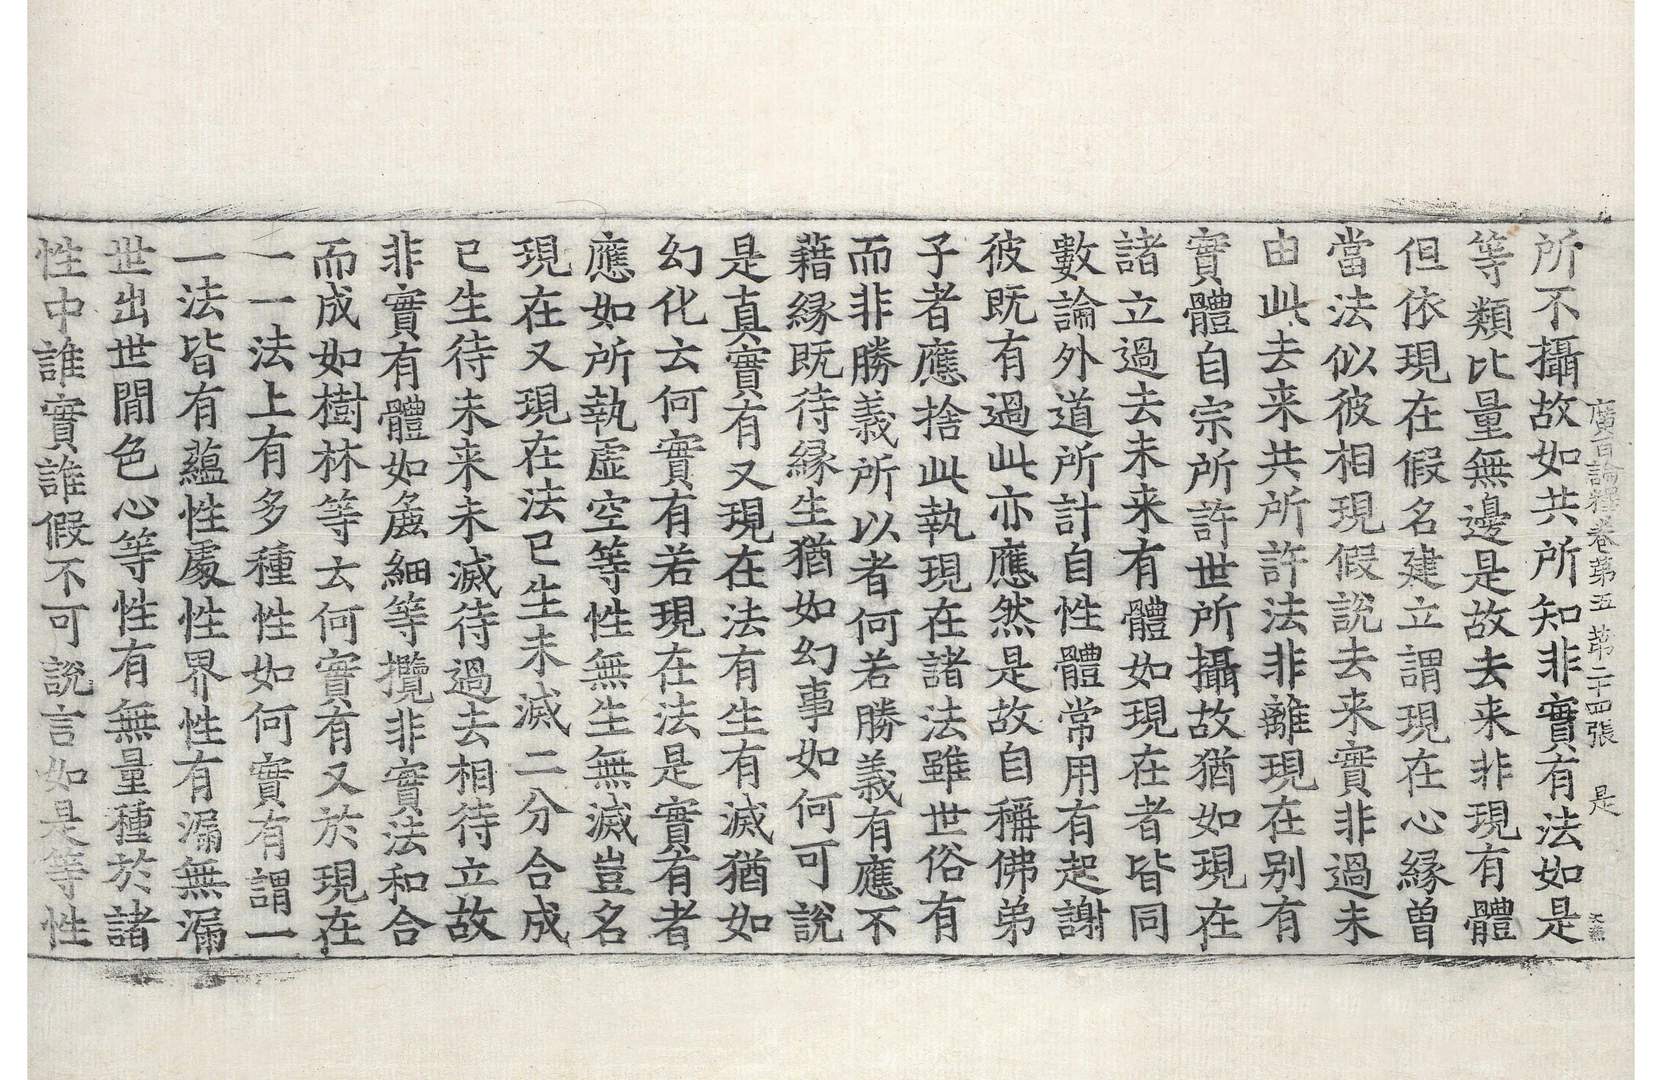 廣百論釋卷第五 第二十四張 是
所不攝故如共所知非實有法如是
等類比量無邊是故去来非現有體
但依現在假名建立謂現在心緣曾
當法似彼相現假說去来實非過未
由此去来共所許法非離現在別有
實體自宗所許世所攝故猶如現在
諸立過去未来有體如現在者皆同
數論外道所計自性體常用有起謝
彼既有過此亦應然是故自稱佛弟
子者應捨此執現在諸法雖世俗有
而非勝義所以者何若勝義有應不
藉緣既待緣生猶如幻事如何可說
是真實有又現在法有生有滅猶如
幻化云何實有若現在法是實有者
應如所執虛空等性無生無滅豈名
現在又現在法已生未滅二分合成
已生待未来未滅待過去相待立故
非實有體如麁細等攬非實法和合
而成如樹林等云何實有又於現在
一一法上有多種性如何實有謂一
一法皆有蘊性處性界性有漏無漏
世出世間色心等性有無量種於諸
性中誰實誰假不可說言如是等性